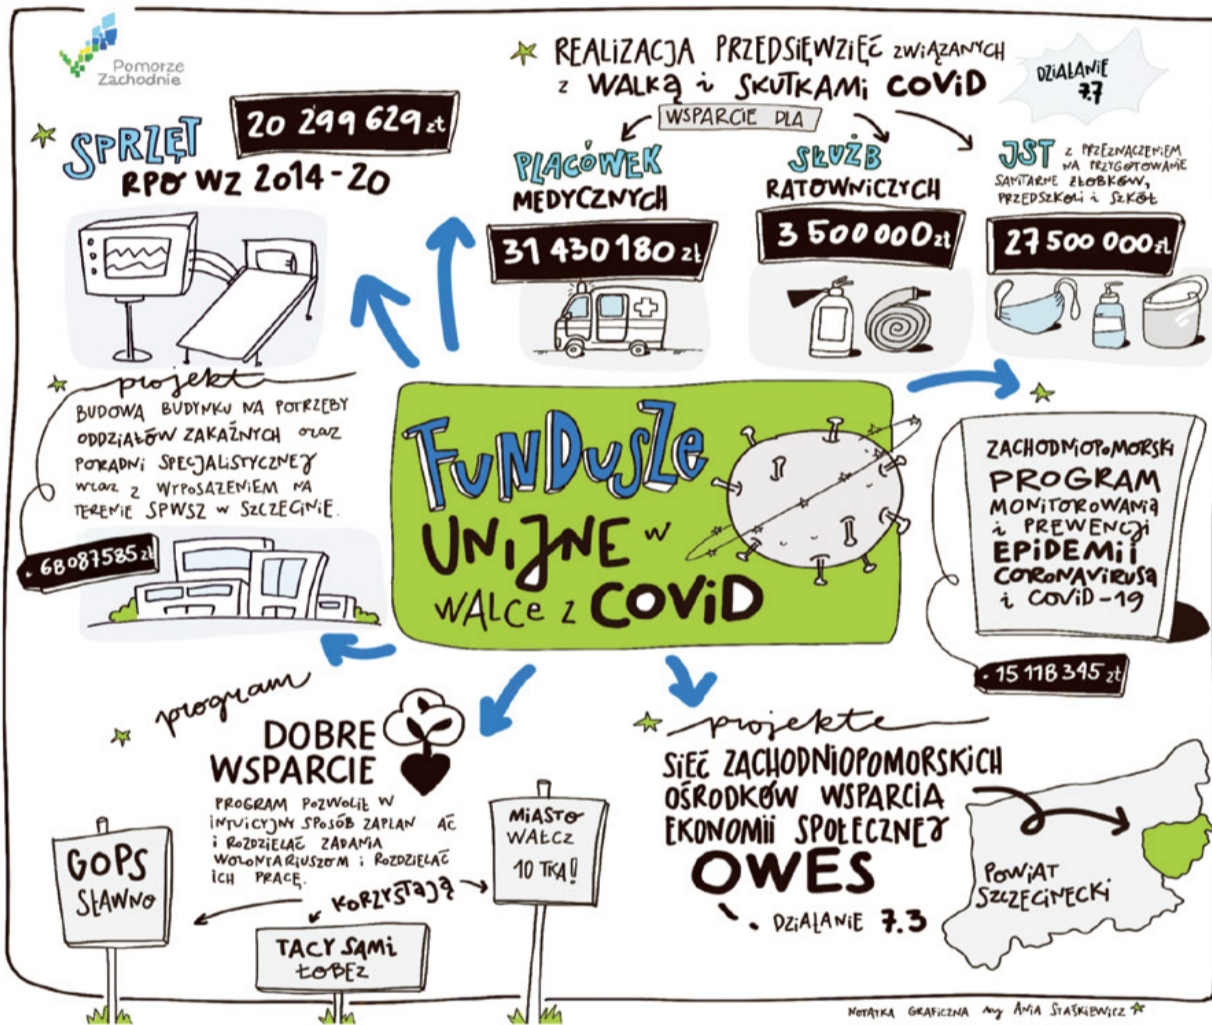 Pomorze
Zachodnie
SPRZĘT
20 299 629 zł
RPO WZ 2014-20
REALIZACJA PRZEDSIĘWZIĘĆ ZWIĄZANYCH
Z WALKĄ i SKUTKAMI COVID
DZIAŁANIE
7.7
WSPARCIE DLA
PLACÓWEK
MEDYCZNYCH
31 430 180 zł
SŁUŻB
RATOWNICZYCH
3 500 000 zł
JST Z PRZEZNACZENIEM
NA PRZYGOTOWANIE
SANITARNE ŻŁOBKÓW,
PRZEDSZKOLI i SZKÓŁ
27 500 000 zł
projekt
BUDOWA BUDYNKU NA POTRZEBY
ODDZIAŁÓW ZAKAŹNYCH oraz
PORADNI SPECJALISTYCZNEJ
wraz z WYPOSAŻENIEM NA
TERENIE SPWSZ w SZCZECINIE.
68087585 zł
FUNDUSZE
UNIJNE W
WALCE Z COVID
ZACHODNIOPOMORSKI
PROGRAM
MONITOROWANIA
i PREWENCJI
EPIDEMII
CORONAVIRUSA
i COVID-19
15 118 345 zł
program
DOBRE
WSPARCIE
PROGRAM POZWOLIŁ W
INTUICYJNY SPOSÓB ZAPLAN AĆ
i ROZDZIELAĆ ZADANIA
WOLONTARIUSZOM i ROZDZIELAĆ
ICH PRACĘ.
KORZYSTAJĄ
GOPS
SŁAWNO
TACY SAMI
ŁOBEZ
MIASTO
WAŁCZ
10 TKA!
projekte
SIEĆ ZACHODNIOPOMORSKICH
OŚRODKÓW WSPARCIA
EKONOMII SPOŁECZNEJ
OWES
DZIAŁANIE 7.3
POWIAT
SZCZECINECKI
NOTATKA GRAFICZNA my ANIA STAŚKIEWICZ